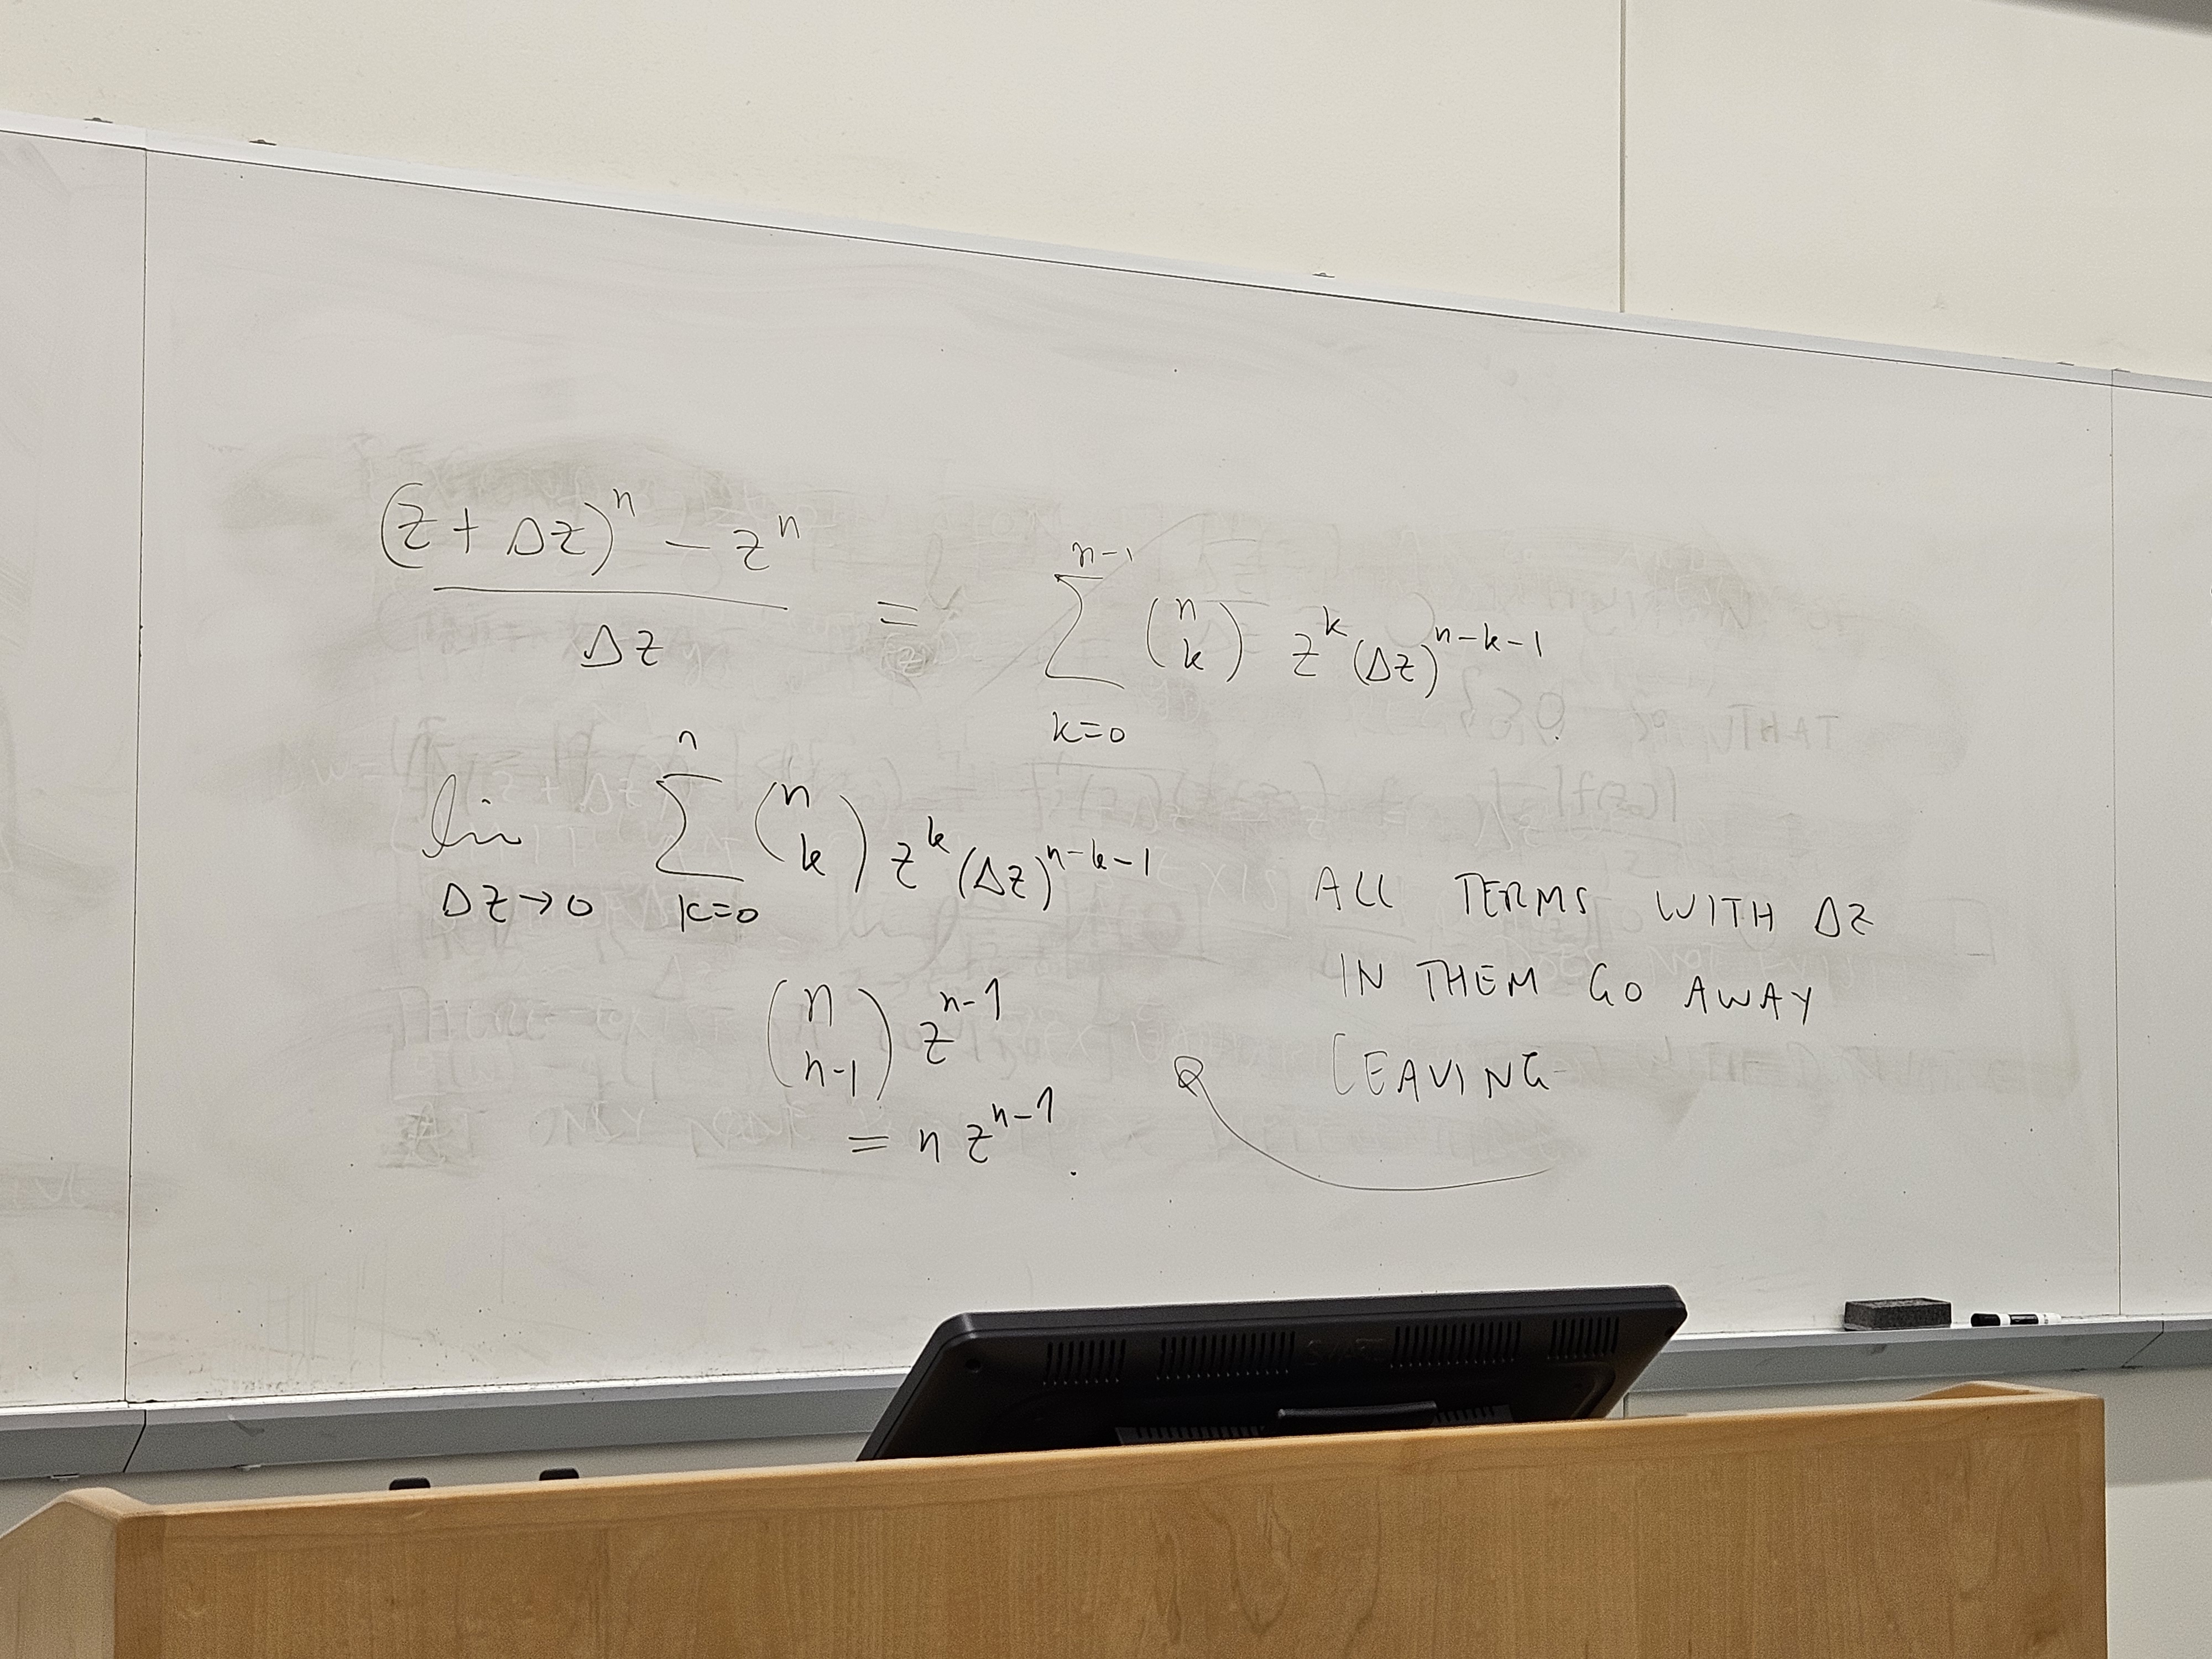 ((z + Δz)^n − z^n) / Δz = Σ_{k=0}^{n−1} (n k) z^k (Δz)^{n−k−1}
lim_{Δz→0} Σ_{k=0}^{n} (n k) z^k (Δz)^{n−k−1}
ALL TERMS WITH Δz
IN THEM GO AWAY
LEAVING
(n n-1) z^{n-1}
= n z^{n-1}.